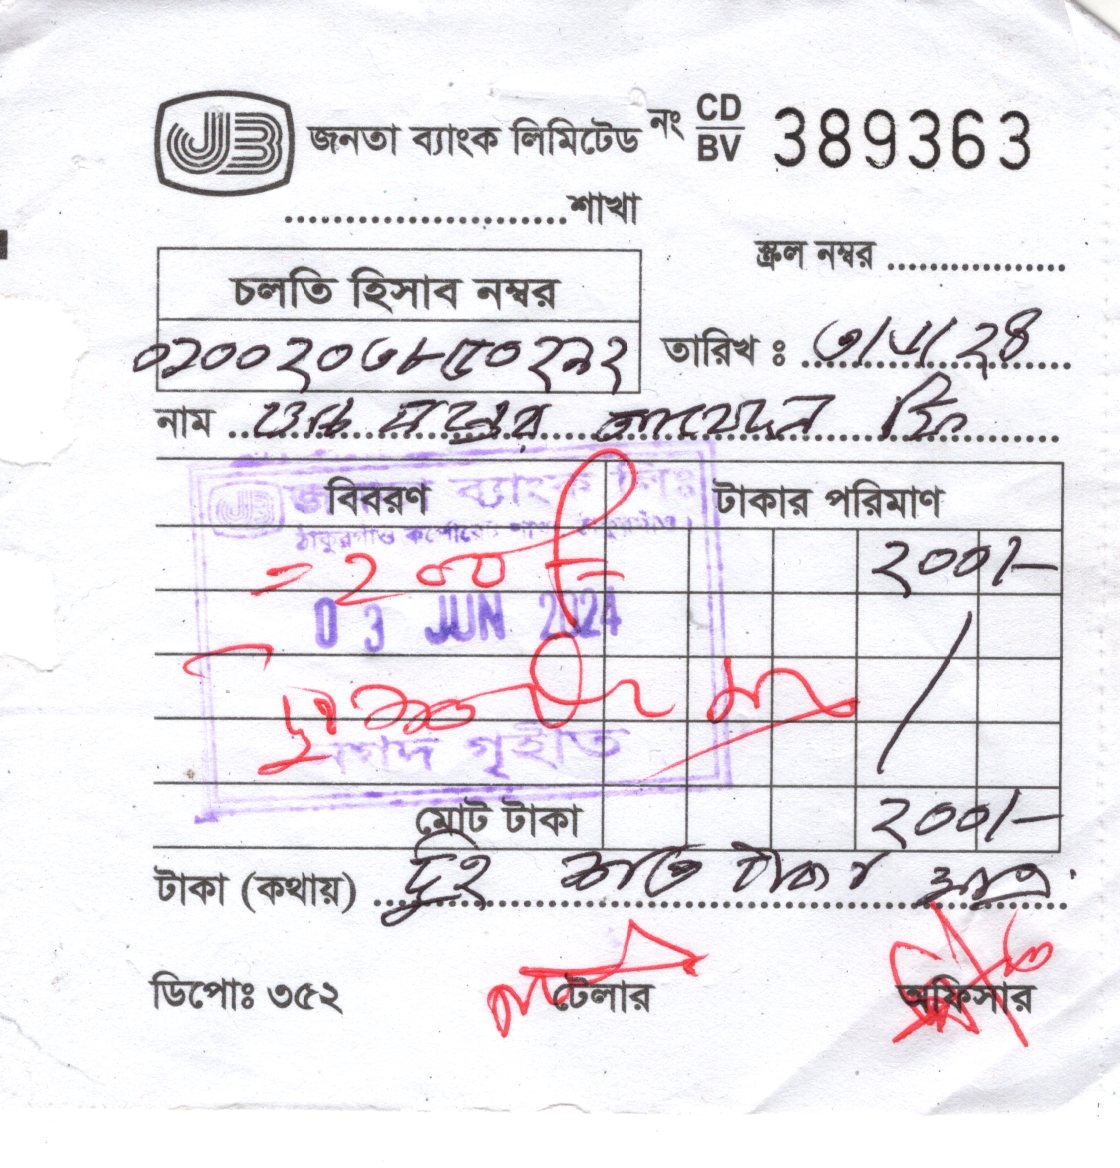 JB জনতা ব্যাংক লিমিটেড নং CD/BV 389363
......................শাখা
স্ক্রল নম্বর ..................
চলতি হিসাব নম্বর
তারিখ : ৩/৬/২৪
নাম
বিবরণ টাকার পরিমাণ
জনতা ব্যাংক লিঃ
২০০/-
= ২০০
03 JUN 2024
নগদ গৃহীত
মোট টাকা ২০০/-
টাকা (কথায়) দুই শত টাকা মাত্র
ডিপোঃ ৩৫২ টেলার অফিসার